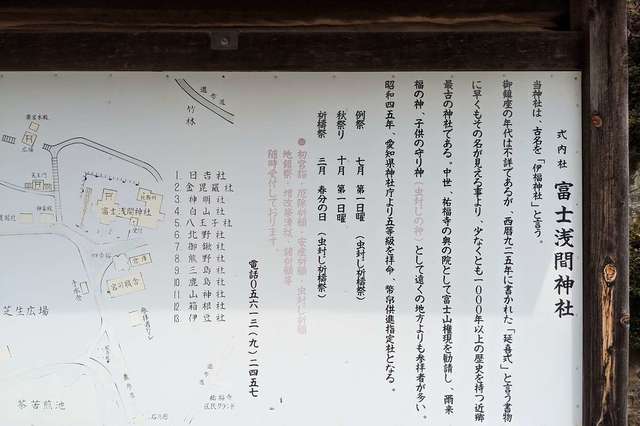 式内社 富士浅間神社
当神社は、古名を「伊福神社」と言う。
御鎮座の年代は不詳であるが、西暦九二五年に書かれた「延喜式」と言う書物
に早くもその名が見える事より、少なくとも一〇〇〇年以上の歴史を持つ近郷
最古の神社である。中世、祐福寺の奥の院として富士山権現を勧請し、爾来
福の神、子供の守り神（虫封じの神）として遠くの地方よりも参拝者が多い。
昭和四五年、愛知県神社庁より五等級を拝命、幣帛供進指定社となる。
例祭 七月 第一日曜（虫封じ祈禱祭）
秋祭り 十月 第一日曜
祈禱祭 三月 春分の日（虫封じ祈禱祭）
●初宮詣 厄除祈願 安産祈願 虫封じ祈願
地鎮祭 増改築清祓 諸祈願等
随時受付しております。
電話 〇五六一三（九）二四五七
1 日吉社
2 金毘羅社
3 神明社
4 白山社
5 八王子社
6 北野社
7 御鍬社
8 熊野社
9 三島社
10 鹿島社
11 山神社
12 箱根社
13 伊豆社
遊歩道
竹林
広場
富士浅間神社
倉庫
宮司館舎
芝生広場
茶苦煎池
遊歩道
祐福寺
区民グランド